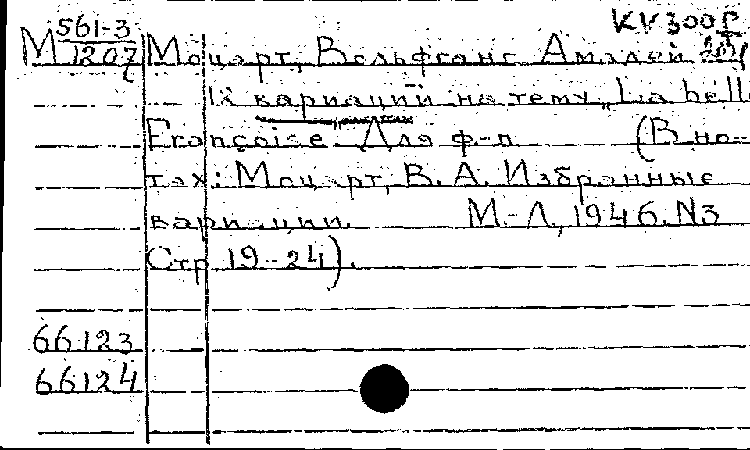 KV 300f
М 561-3
1207
Моцарт, Вольфганг Амадей
12 вариаций на тему „La bell
Françoise. Для ф-п (В но-
тах: Моцарт, В. А. Избранные
вариации. М.-Л, 1946. N3
Стр 19-24).
66123
66124